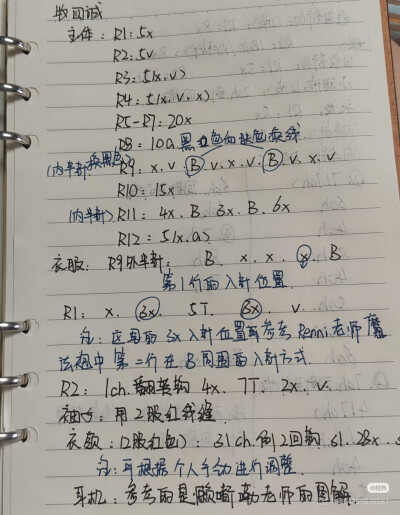 主体: R1: 5x
R2: 5v
R3: 5(x.v)
R4: 5(x.v.x)
R5-R7: 20x
R8: 10a
(内半针) R9: x.v.B.v.x.v.B.v.x.v
R10: 15x
(内半针) R11: 4x.B.3x.B.6x
R12: 5(x.a)
衣服: R9外半针: B. x. x. x. B
第1行的入针位置
R1: x. 3x. 5T. 3x. v.
注: 这里的3x入针位置可参考Renni老师魔
法袍中第二行在B周围的入针方式.
R2: 1ch.翻转钩 4x. 7T. 2x. v.
袖口: 用2股红线缝
衣领: (2股红色): 31ch.倒2回钩 sl. 28x. s
注: 可根据个人手劲进行调整.
耳机: 参考的是 老师的图解
小红书